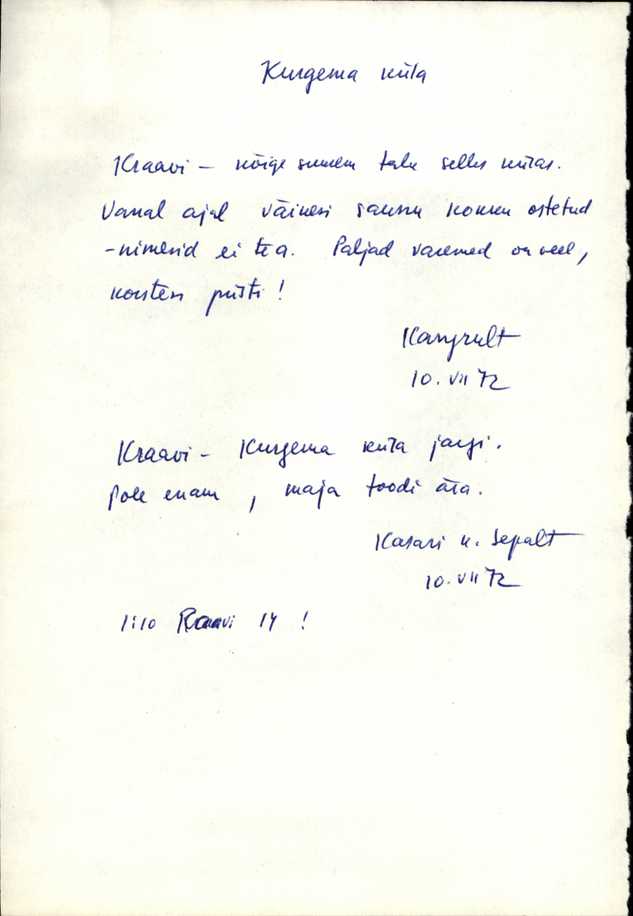 Kurgema küla
Kraavi – kõige suurem talu selles külas.
Vanal ajal väikesi saunu kokku ostetud
– nimesid ei tea. Paljad varemed on veel,
korsten püsti!
10. VII 72
Kraavi – Kurgema küla järgi.
Pole enam, maja toodi ära.
Kasari k. Sepalt
10. VII 72
1:10 Raavi 14!